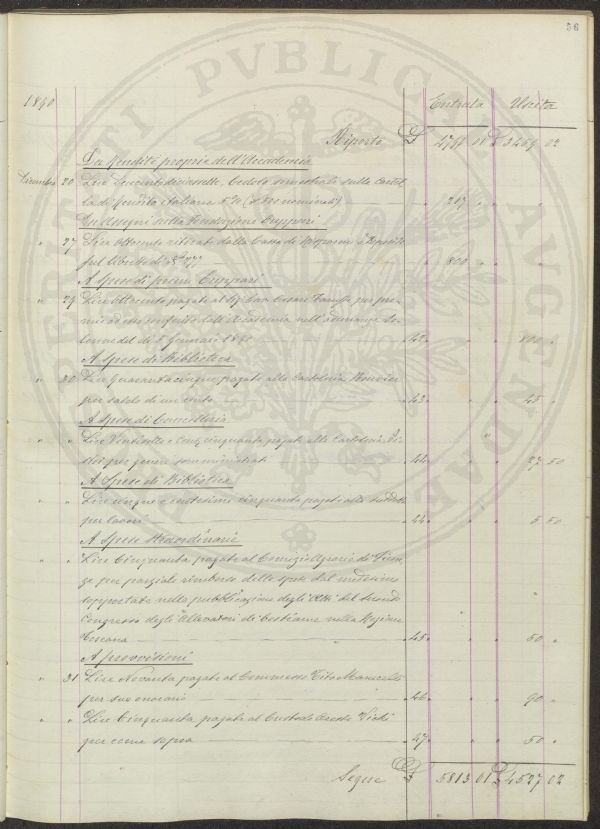 56
PROSPERITATI PVBLICAE AVGENDAE
1890
Entrata Uscita
Riporto £ 4796 01 £ 3459 02
Da Rendite proprie dell'Accademia
Dicembre 20 Lire Duecentodiciassette, Cedola semestrale sulla Cartel
la di Rendita italiana 5% " 217 " "
Da Assegni della Fondazione Cuppari
" 27 Lire Ottocento ritirate dalla Cassa di Risparmio e Depositi
sul libretto di " 800 " "
A Spese di premi Cuppari
" 29 Lire Ottocento pagate al Sig. Cesare per pre
mio ad esso conferito dall'Accademia nell'adunanza So
lenne del dì 5 Gennaio 1890 42. " " 800 "
A Spese di Biblioteca
" 30 Lire Quarantacinque pagate alla Cartoleria
per saldo di un conto 43. " " 45 "
A Spese di Cancelleria
" " Lire Ventisette e Cent. cinquanta pagate alla Cartoleria
per generi somministrati 44. " " 27 50
A Spese di Biblioteca
" " Lire cinque e centesimi cinquanta pagate alla suddetta
per lavori 44. " " 5 50
A Spese Straordinarie
" " Lire Cinquanta pagate al Comizio Agrario di Firen
ze per parziale rimborso delle spese dal medesimo
sopportate nella pubblicazione degli Atti del Secondo
Congresso degli Allevatori di bestiame nella Regione
Toscana 45. " " 50 "
A provvisioni
" 31 Lire Novanta pagate al Commesso Tito
per suo onorario 46. " " 90 "
" " Lire Cinquanta pagate al Custode Oreste
per come sopra 47. " " 50 "
Segue £ 5813 01 £ 4527 02